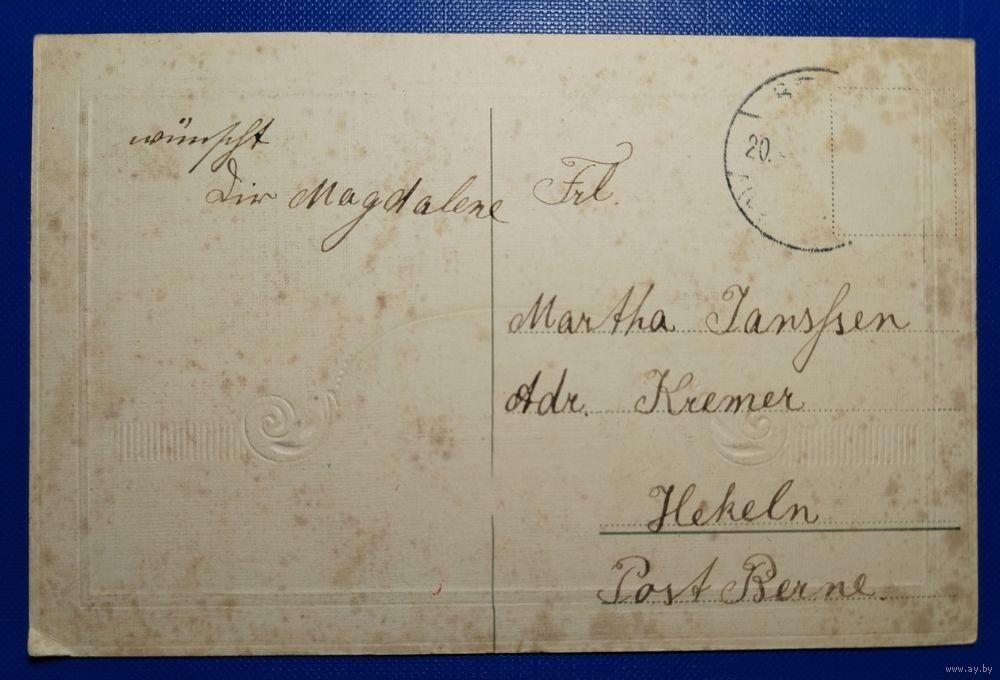 wünscht
Dir Magdalene
Frl.
Martha Janssen
Adr. Kremer
Hekeln
Post Berne.
20.
www.ay.by